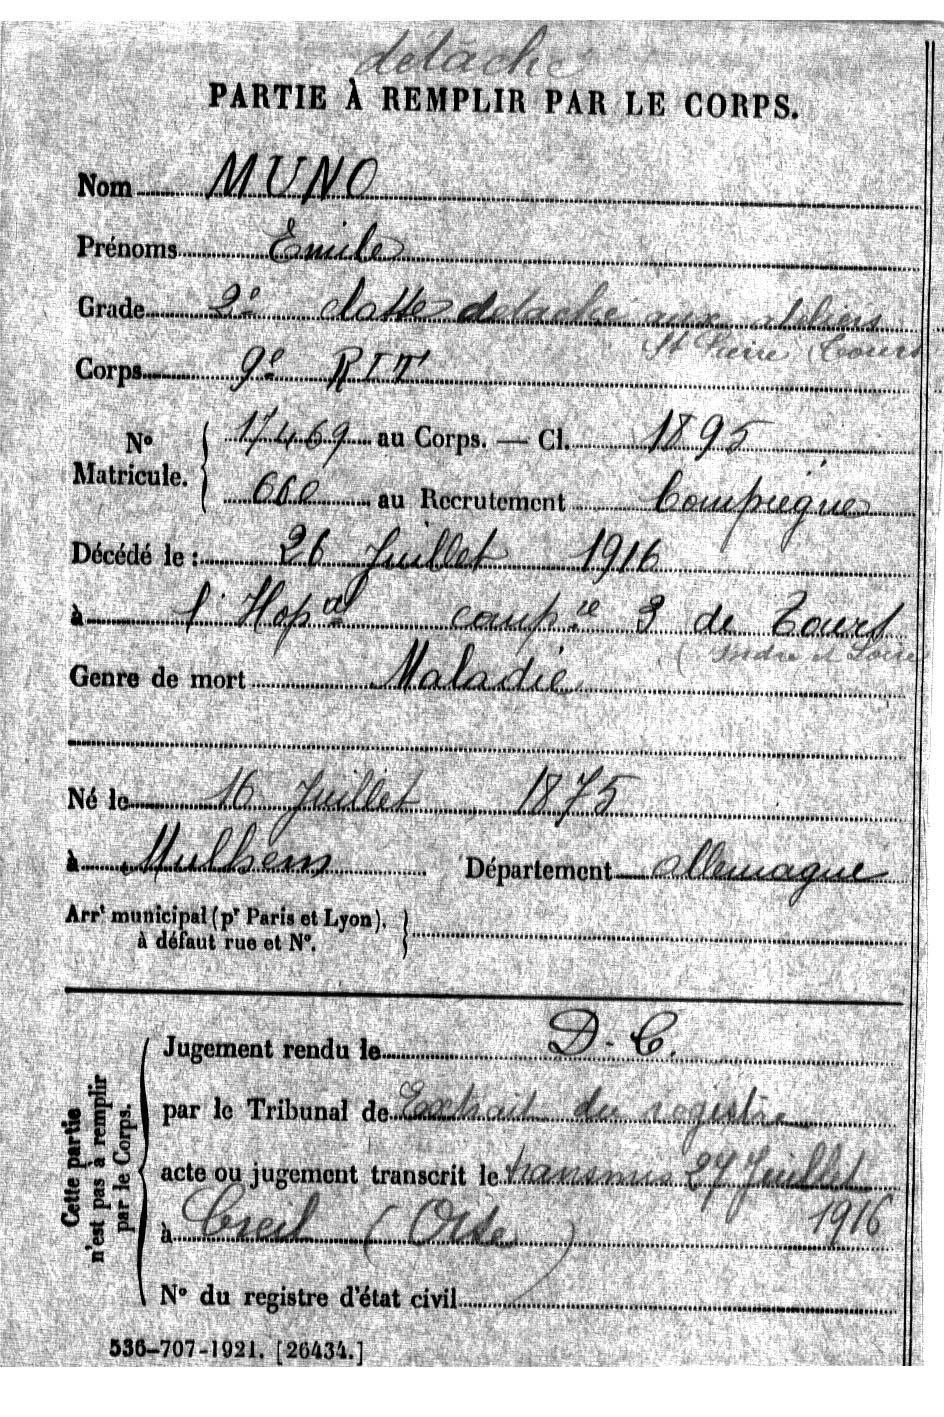 détaché
PARTIE À REMPLIR PAR LE CORPS.
Nom MUNO
Prénoms Emile
Grade 2e classe détaché aux ateliers
St Pierre (Tours
Corps 9e RIT
No Matricule. 17469 au Corps. — Cl. 1895
660 au Recrutement Compiègne
Décédé le : 26 Juillet 1916
à l'Hopal 3 de Tours
(Indre et Loire
Genre de mort Maladie
Né le 16 Juillet 1875
à Mulhem Département Allemagne
Arrt municipal (pr Paris et Lyon),
à défaut rue et No.
Cette partie n'est pas à remplir par le Corps.
Jugement rendu le D. C.
par le Tribunal de Extrait du registre
acte ou jugement transcrit le transmis 27 Juillet
1916
à Creil (Oise)
No du registre d'état civil
536-707-1921. [26434.]